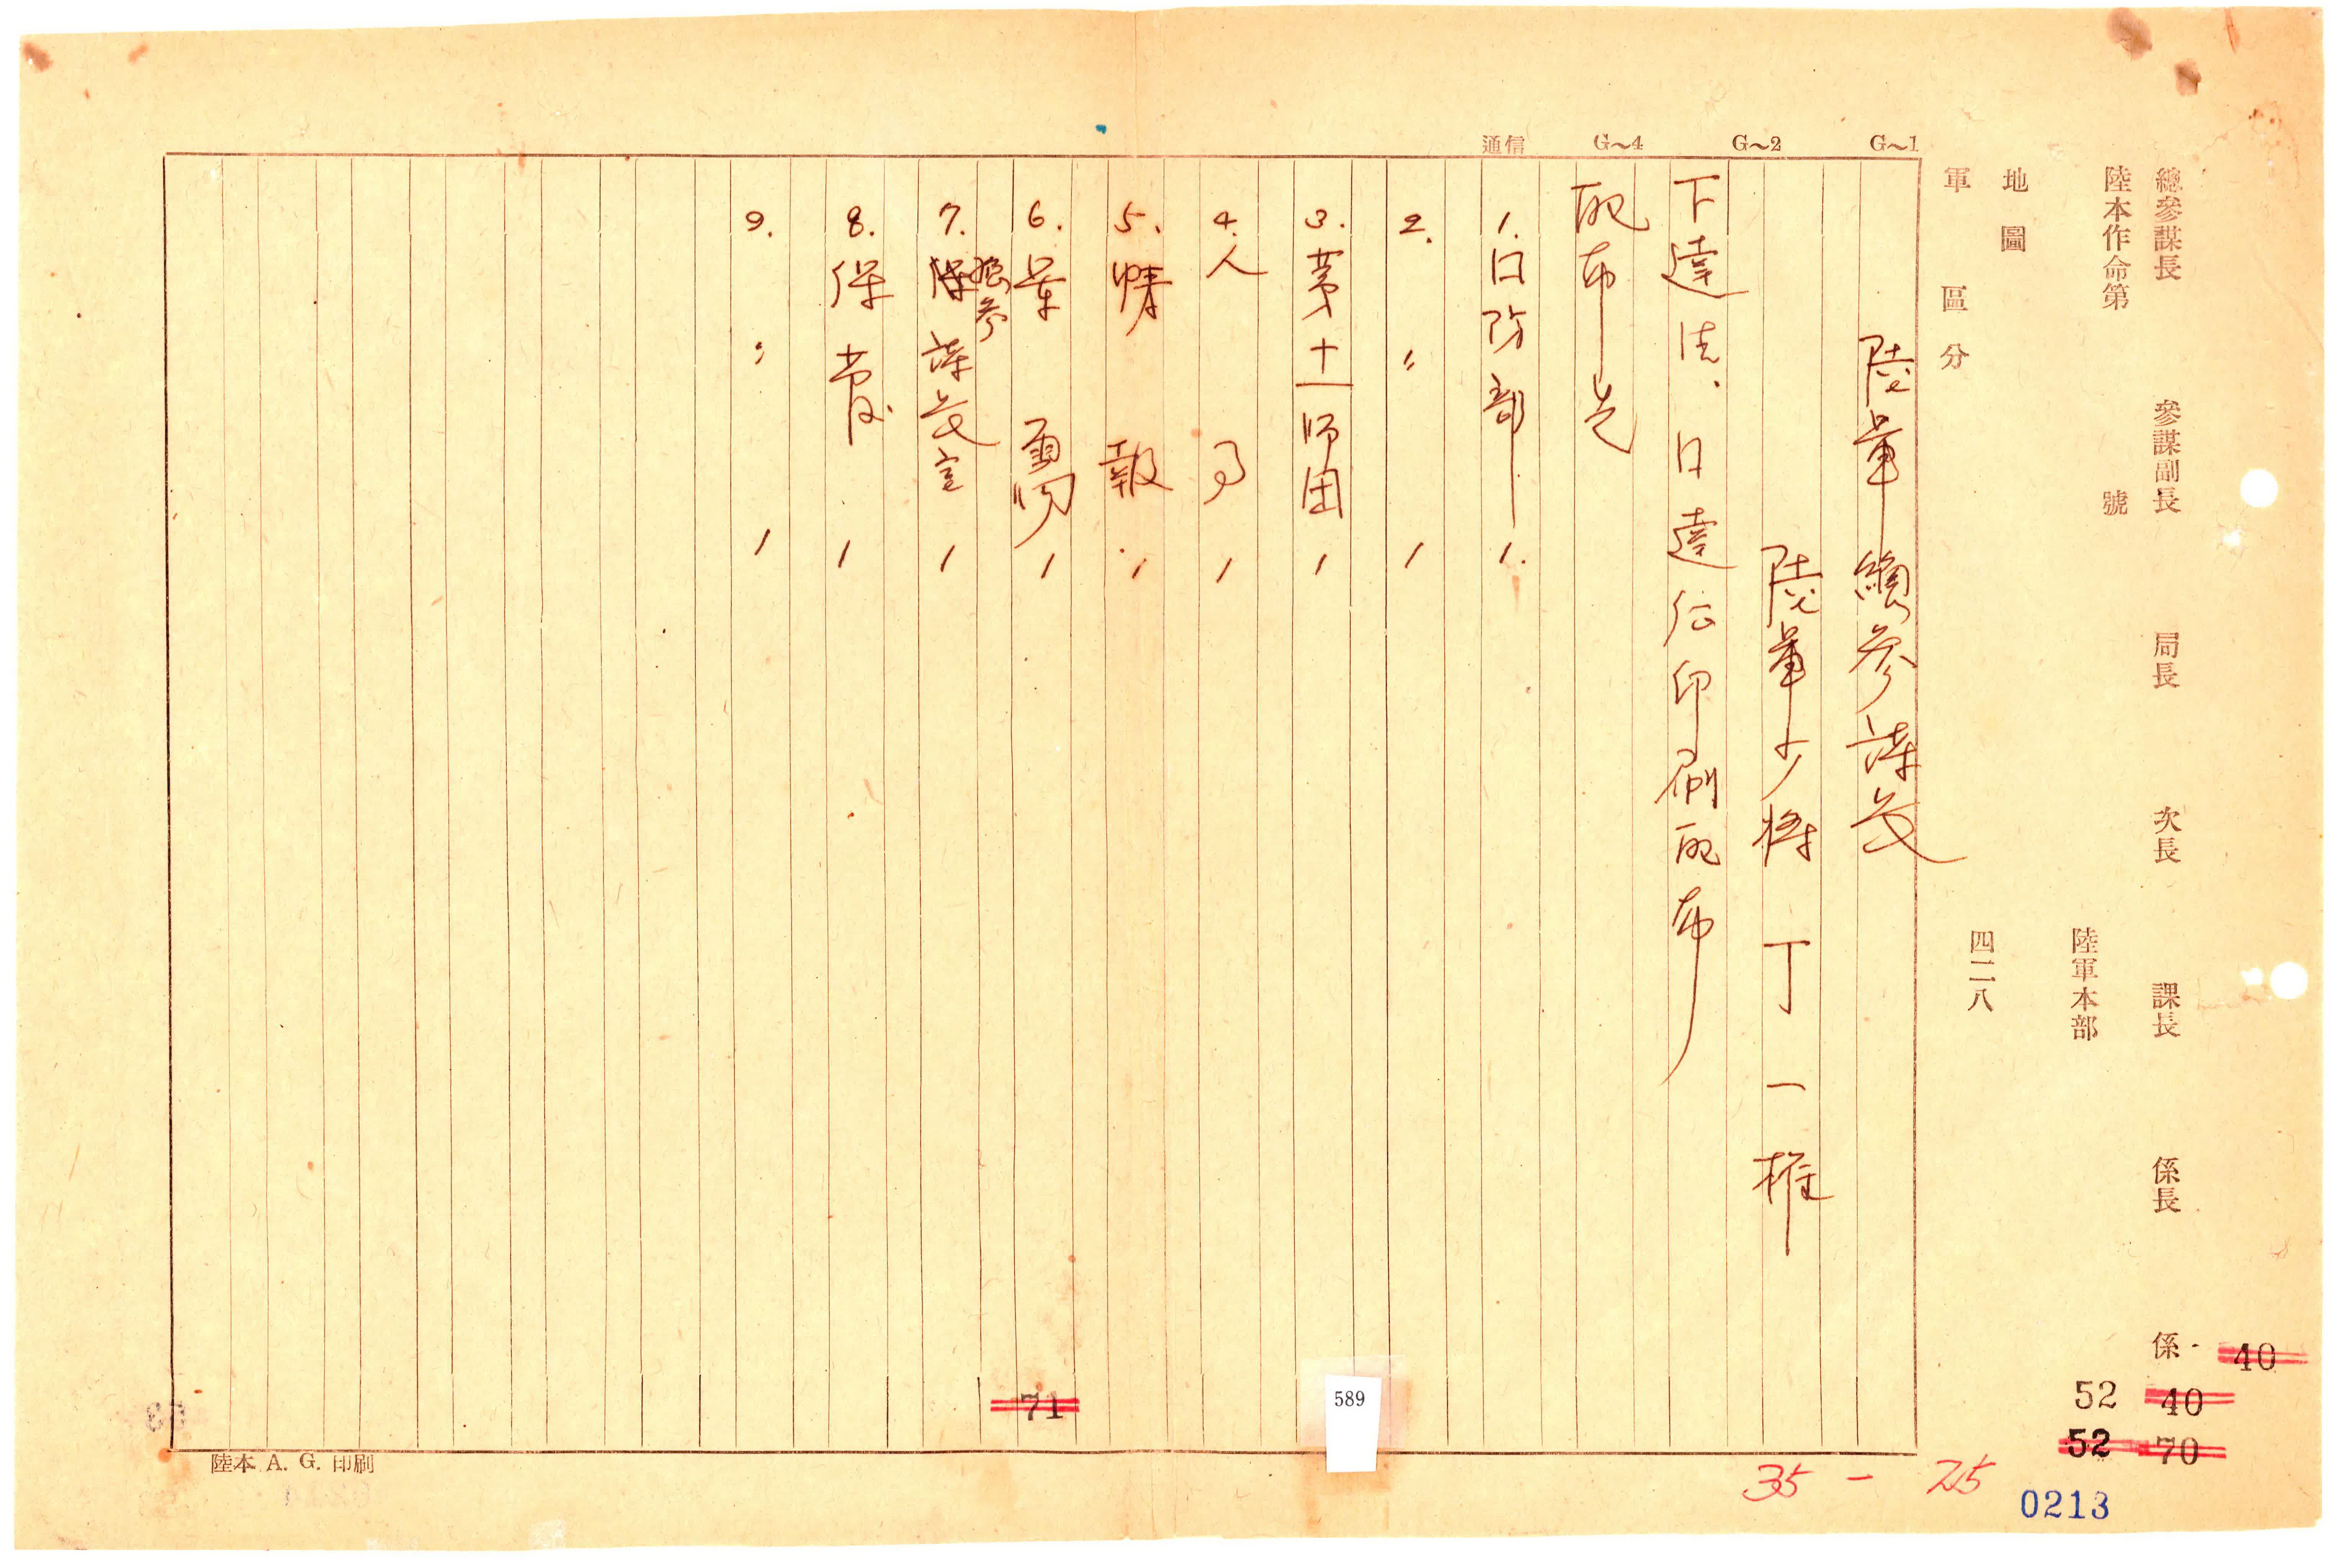 總參謀長 參謀副長 局長 次長 課長 係長 係
陸本作命第 號
陸軍本部
地圖
四二八
軍區分
G~1
G~2
G~4
通信
陸軍總參謀長
陸軍少將 丁一權
下達法、口達后印刷配布
配布先
1. 口防部 1.
2. 〃 1
3. 第十一師団 1
4. 人 司 1
5. 情 報 1
6. 軍 需 1
7. 參謀長室 1
8. 保 1
9. 〃 1
陸本 A. G. 印刷
71
589
40
52 40
52 70
35 - 75
0213